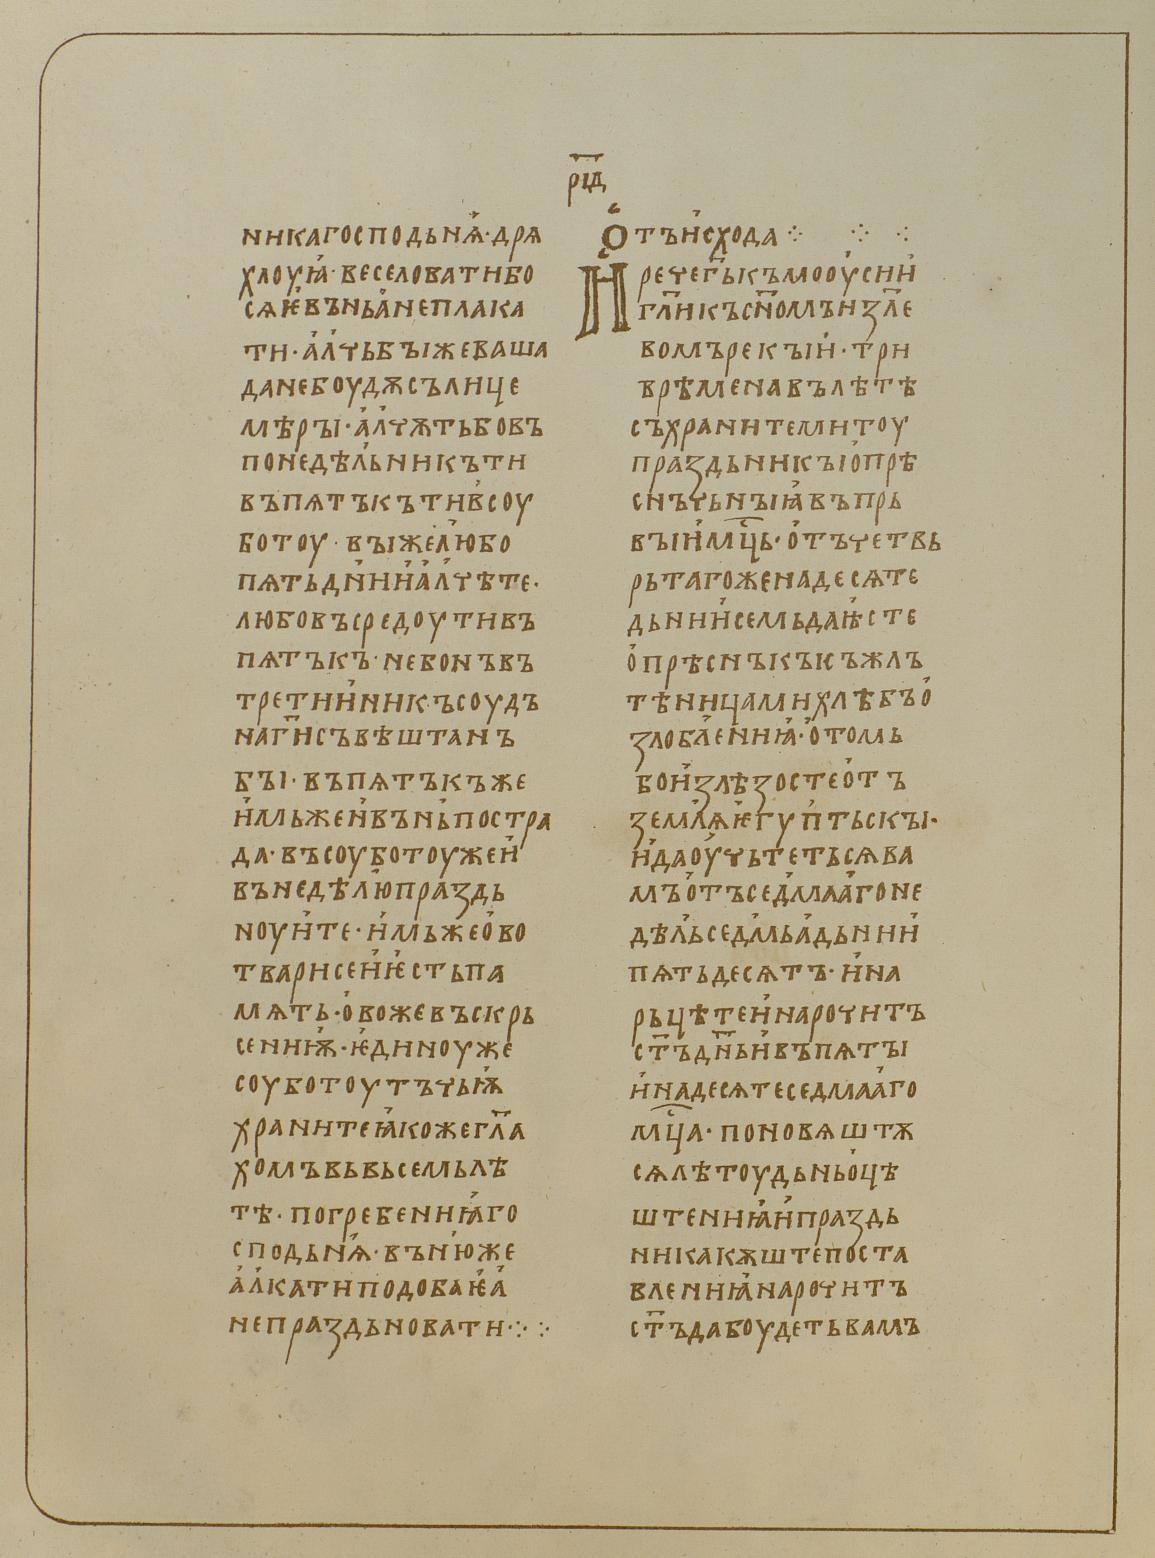 р҃ід
никагосподьнѧ·дрѧ
хлоуꙗ·веселоватибо
сѧѥвъньанеплака
ти·алчьбꙑжеваша
данебоудѫсълице
мѣрꙑ·алчѫтьбовъ
понедѣльникъти
въпѧтъкътивсоу
ботоу·вꙑжелюбо
пѧтьдн҃ииалчѣте·
любовъсредоутивъ
пѧтъкъ·небонъвъ
третииникъсоудъ
наг҃нсъвѣштанъ
бꙑ·въпѧтъкъже
имьжеивъньпостра
да·въсоуботоужеи
въпедѣлюпраздь
ноуите·имьжеово
твариСеиѥстьпа
мѧть·овожевъскрь
сениꙗ·ѥдиноуже
соуботоутъчьѭ
хранитеꙗкожегл҃а
хомъвьвьсемьлѣ
тѣ·погребениꙗго
сподьнѧ·въпюже
алкатиподобаѥа
непраздьновати·:· :·
Отъисхода ·:· ·:· ·:
Иречег҃ькъмооусии
гл҃икъсн҃омъизл҃е
вомърекꙑи·три
врѣменавълѣтѣ
съхранитемитоу
праздьникꙑопрѣ
снъчьнꙑꙗвъпрь
вꙑимц҃ь·отъчетвь
рьтагоженадесѧте
дьниисемьдаꙗсте
опрѣснъкъкъжлъ
тѣницамихлѣбъо
злоблениꙗ·отомь
боизлѣзостеотъ
землѧѥгуптьскꙑ·
идаоучьтетьсѧва
мъотъседмаагоне
дѣльседмьадьнии
пѧтьдесѧтъ·ина
рьцѣтеинарочитъ
ст҃ъдн҃ьивъпѧтꙑ
инадесѧтеседмааго
мц҃а·поновѧштѫ
сѧлѣтоудьньоцѣ
штениꙗипраздь
никакѫштепоста
влениꙗнарочитъ
ст҃ъдабоудетьвамъ